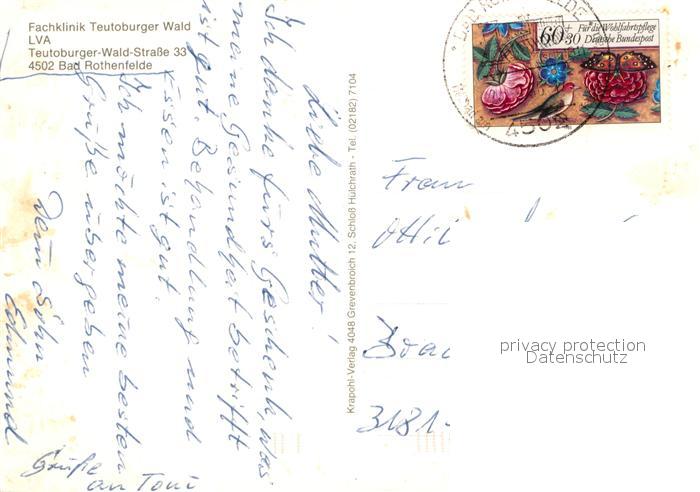 Fachklinik Teutoburger Wald
LVA
Teutoburger-Wald-Straße 33
4502 Bad Rothenfelde
Liebe Mutter!
Ich danke fürs Geschenk, was
meine Gesundheit betrifft
ist gut. Behandlung und
Essen ist gut.
Ich möchte meine besten
Grüße übergeben
Dein Sohn
Edmund
Grüße
an Toni
Krapohl-Verlag 4048 Grevenbroich 12, Schloß Hülchrath - Tel. (02182) 7104
60
+
30
Für die Wohlfahrtspflege
Deutsche Bundespost
4502
Frau
Otti
3181-
privacy protection
Datenschutz